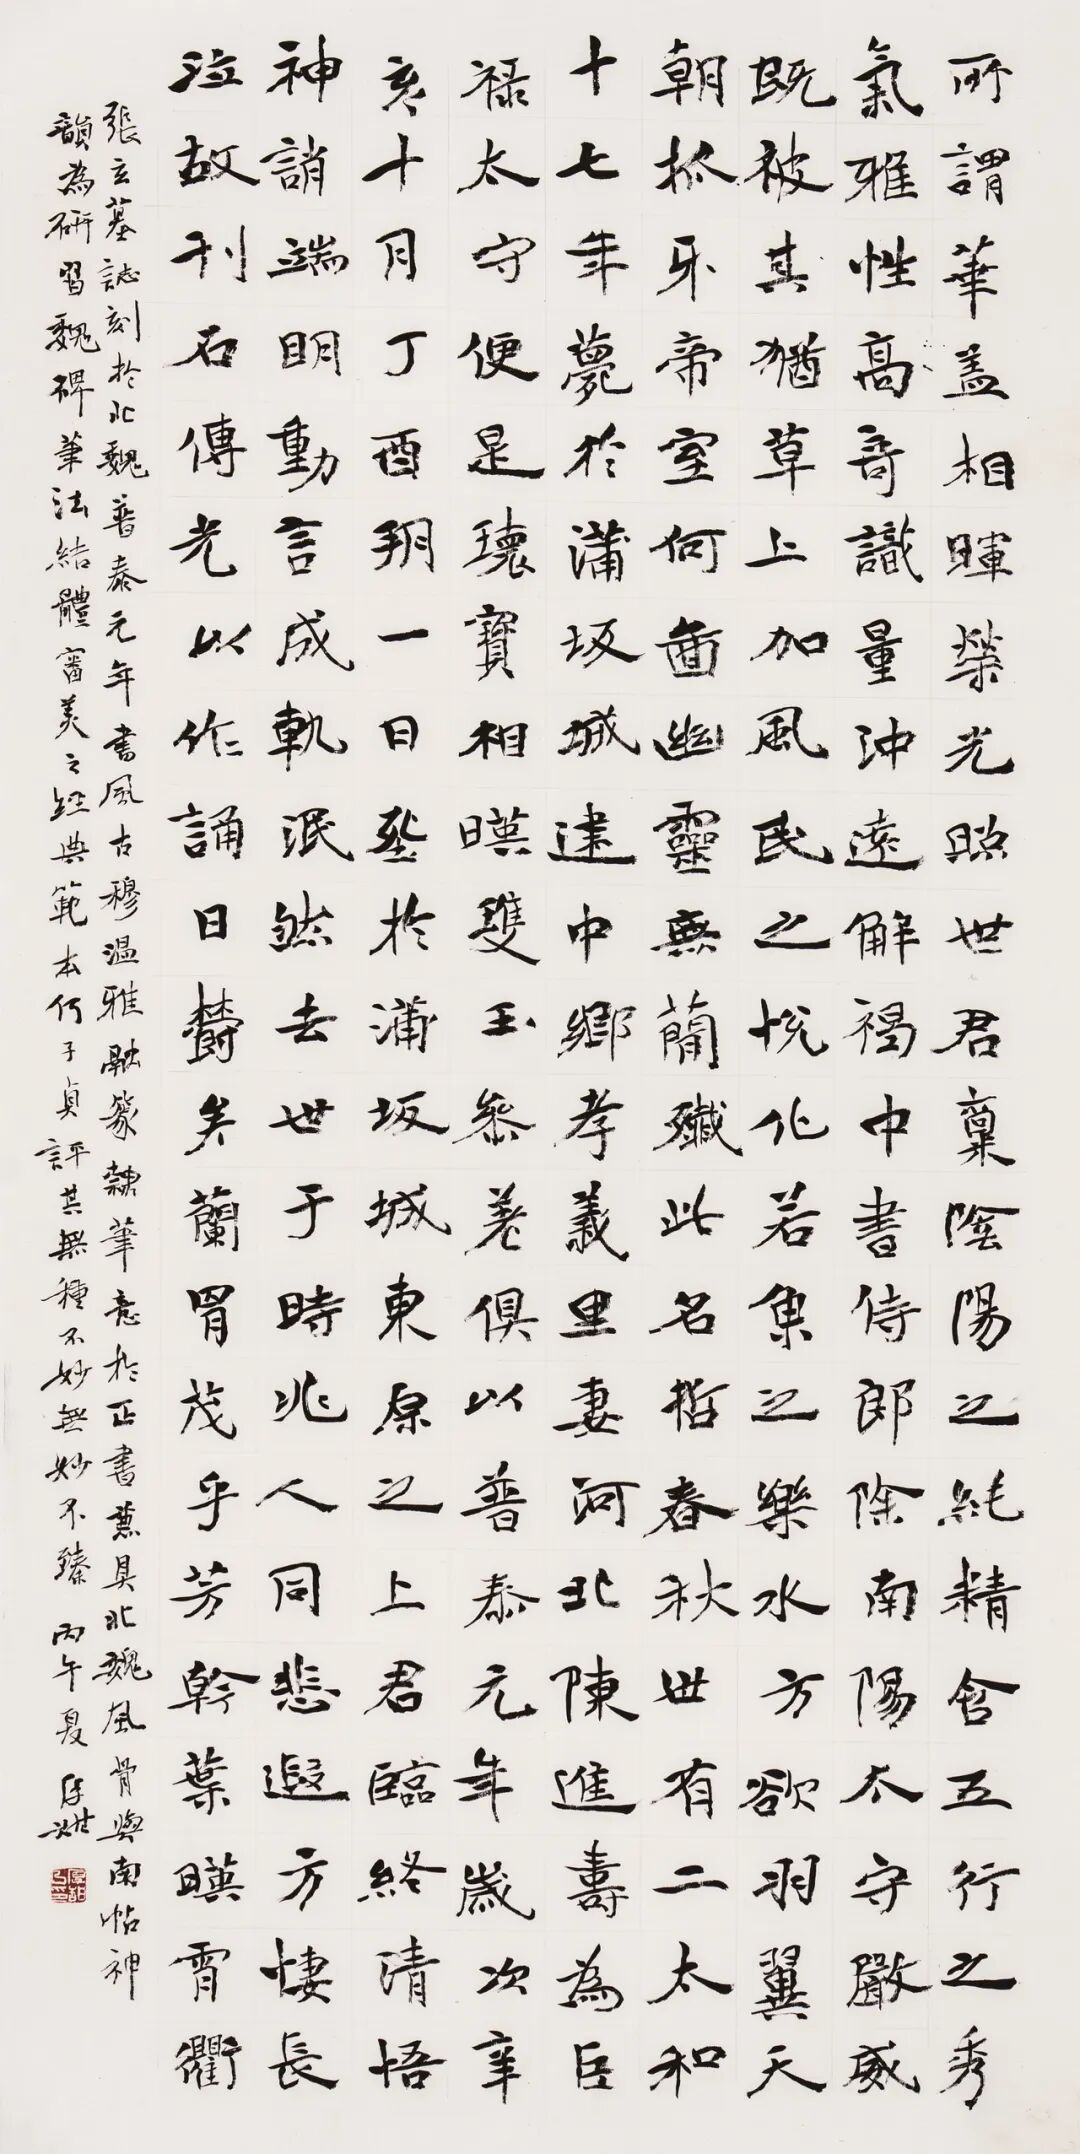 所謂華盖相暉榮光照世君稟陰陽之純精含五行之秀
氣雅性高奇識量沖遠解褐中書侍郎除南陽太守嚴威
既被其猶草上加風民之悅化若集之樂水方欲羽翼天
朝抓牙帝室何啚幽靈無蕳殲此名哲春秋世有二太和
十七年薨於蒲坂城建中鄉孝義里妻河北陳進壽為巨
禄太守便是瓌寳相暎雙玉参差俱以普泰元年歲次辛
亥十月丁酉朔一日塟於蒲坂城東原之上君臨終清悟
神誚端明動言成軌泯然去世于時兆人同悲遐方悽長
泣故刊石傳光以作誦曰欝矣蘭胄茂乎芳幹葉暎霄衢
張玄墓誌刻於北魏普泰元年書風古穆温雅融篆隸筆意於正書蕙具北魏風骨與南帖神
韻為研習魏碑筆法結體審美之經典範本何子貞評其無種不妙無妙不臻 丙午夏